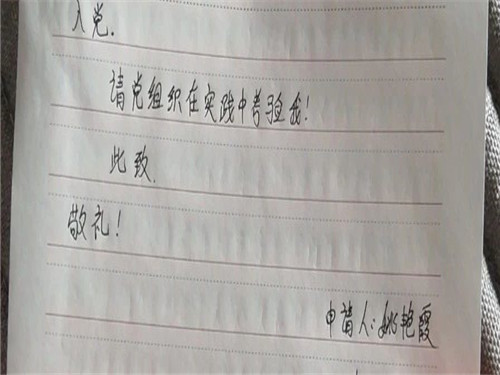 入党.
请党组织在实践中考验我!
此致.
敬礼!
申请人:姚艳霞